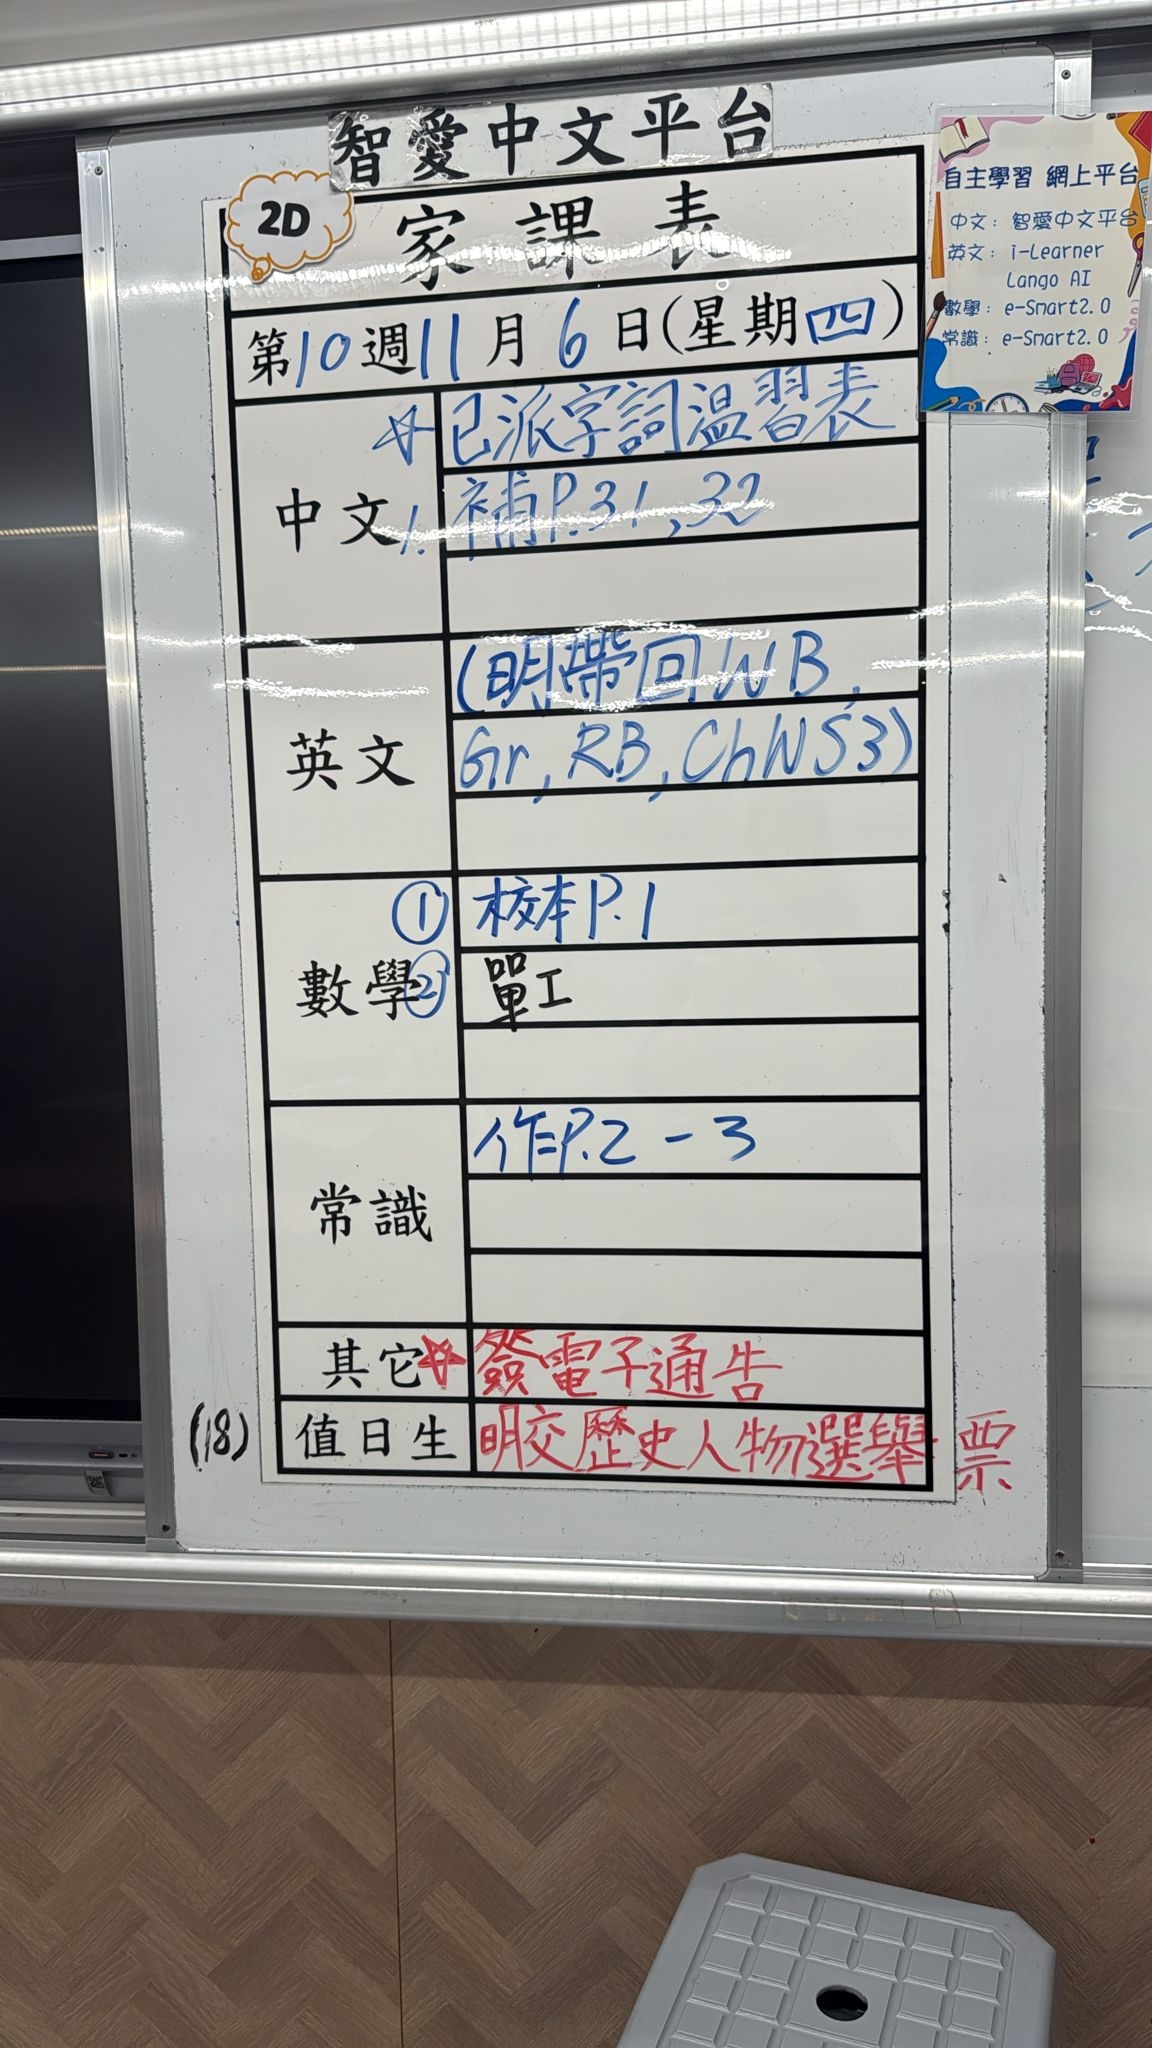 智愛中文平台
2D
家課表
第10週11月6日(星期四)
中文
☆已派字詞溫習表
1. 補P.31,32
英文
(明帶回WB,
Gr, RB, ChWS3)
數學
① 校本P.1
② 單工
常識
作P.2-3
其它
☆簽電子通告
(18) 值日生
明交歷史人物選舉票
自主學習 網上平台
中文:智愛中文平台
英文:i-Learner
Lango AI
數學:e-Smart2.0
常識:e-Smart2.0